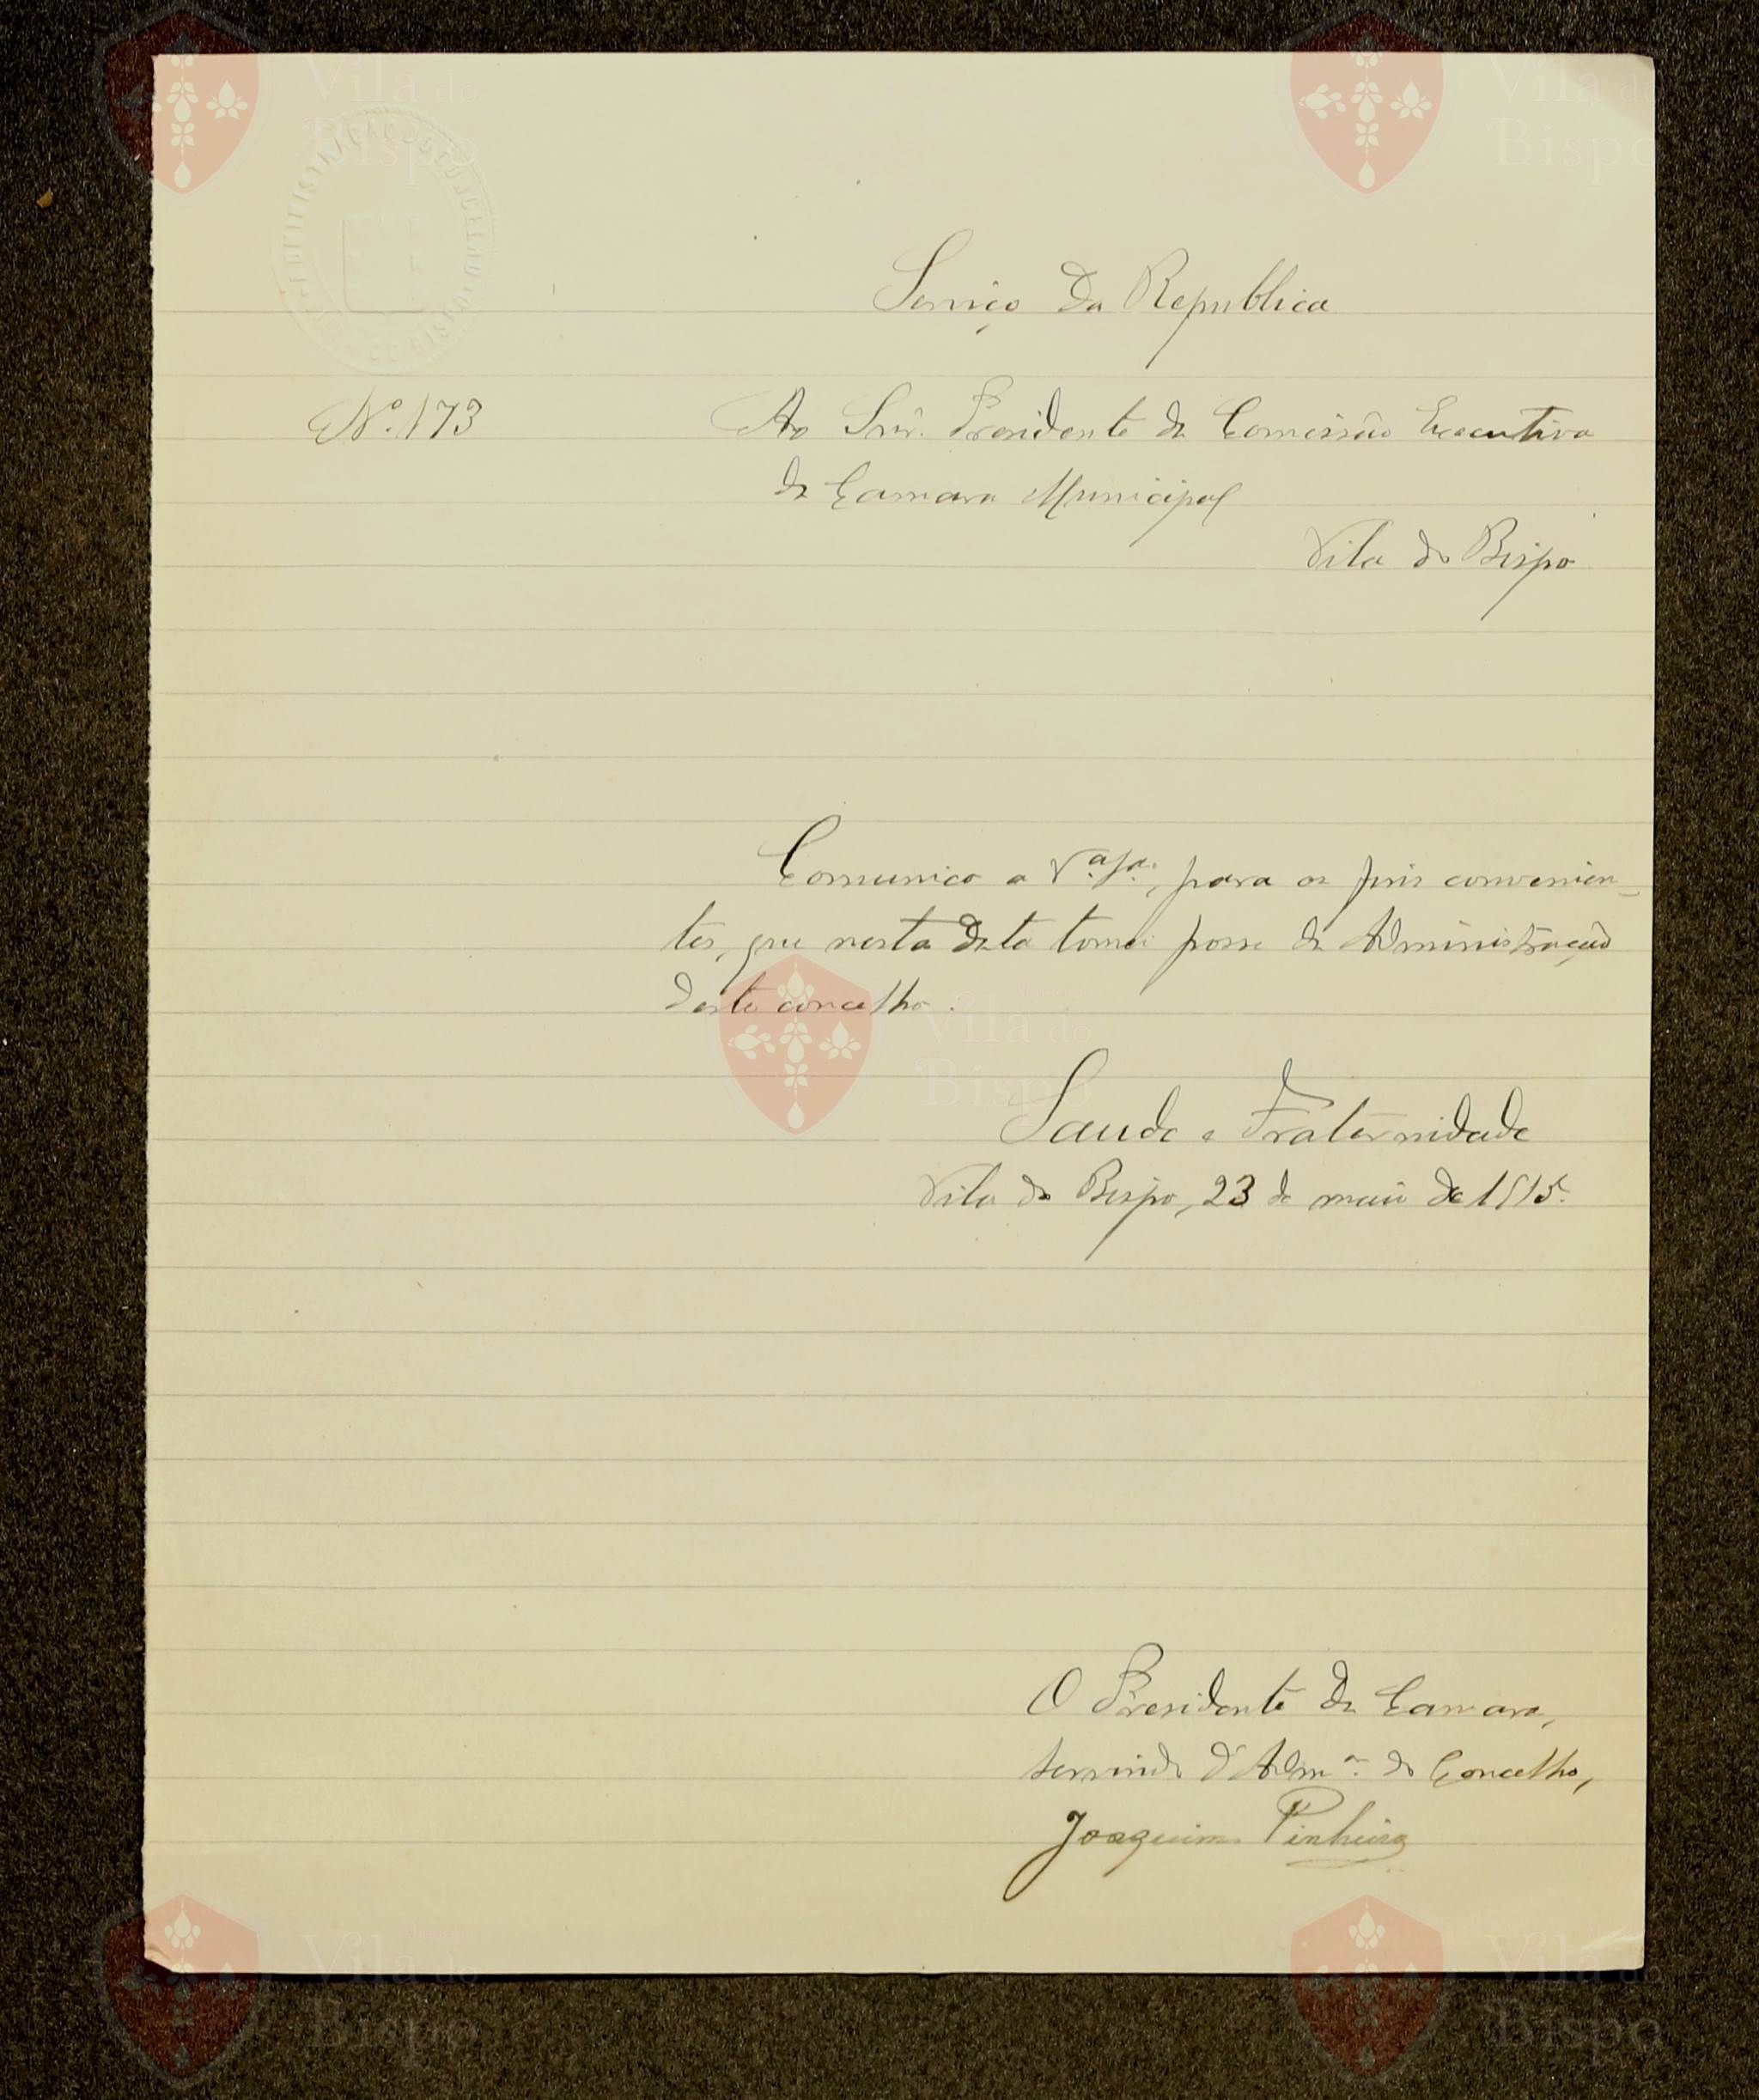 Serviço da Republica
Nº 173
Ao Snr. Presidente da Comissão Executiva
da Camara Municipal
Vila do Bispo
Comunico a V.ª S.ª, para os fins convenien-
tes, que nesta data tomei posse da Administração
deste concelho.
Saude e Fraternidade
Vila do Bispo, 23 de maio de 1915.
O Presidente da Camara,
servindo d'Adm.ºr do Concelho,
Joaquim Pinheiro
Vila do
Bispo
Vila do
Bispo
Vila do
Bispo
Vila do
Bispo
Vila do
Bispo